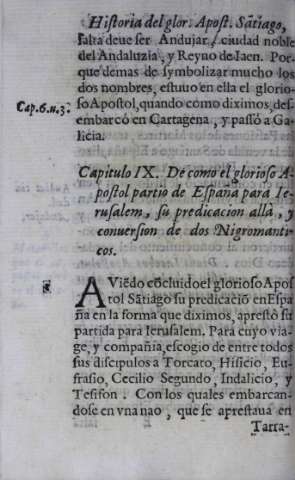 Historia del glor. Apost. Sãtiago,
falta deue ser Andujar, ciudad noble
del Andaluzia, y Reyno de Iaen. Por-
que demas de symbolizar mucho los
dos nombres, estuuo en ella el glorio-
Cap.6.n.3. so Apostol, quando como diximos, des-
embarcó en Cartagena, y passó a Ga-
licia.
Capitulo IX. De como el glorioso A-
postol partio de España para Ie-
rusalem, su predicacion allà, y
conuersion de dos Nigromanti-
cos.
AViẽdo cõcluido el glorioso Apos
tol Sãtiago su predicaciõ en Espa
ña en la forma que diximos, aprestò su
partida para Ierusalem. Para cuyo via-
ge, y compañia, escogio de entre todos
sus discipulos a Torcato, Hisicio, Eu-
frasio, Cecilio Segundo, Indalicio, y
Tesifon. Con los quales embarcan-
dose en vna nao, que se aprestaua en
Tarra-